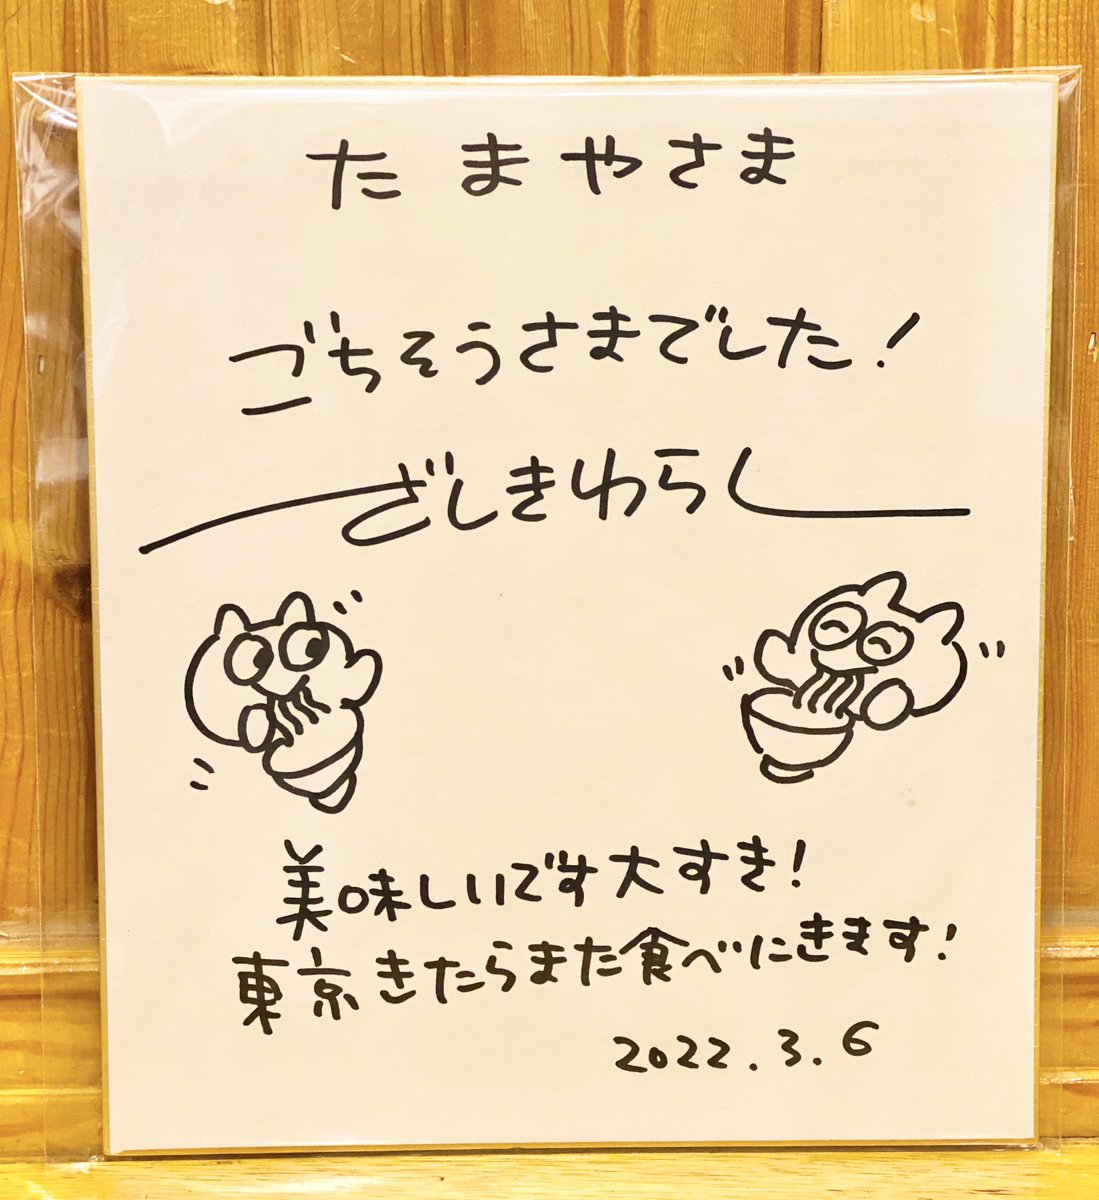 たまやさま
ごちそうさまでした!
ざしきわらし
美味しいです大すき!
東京きたらまた食べにきます!
2022.3.6